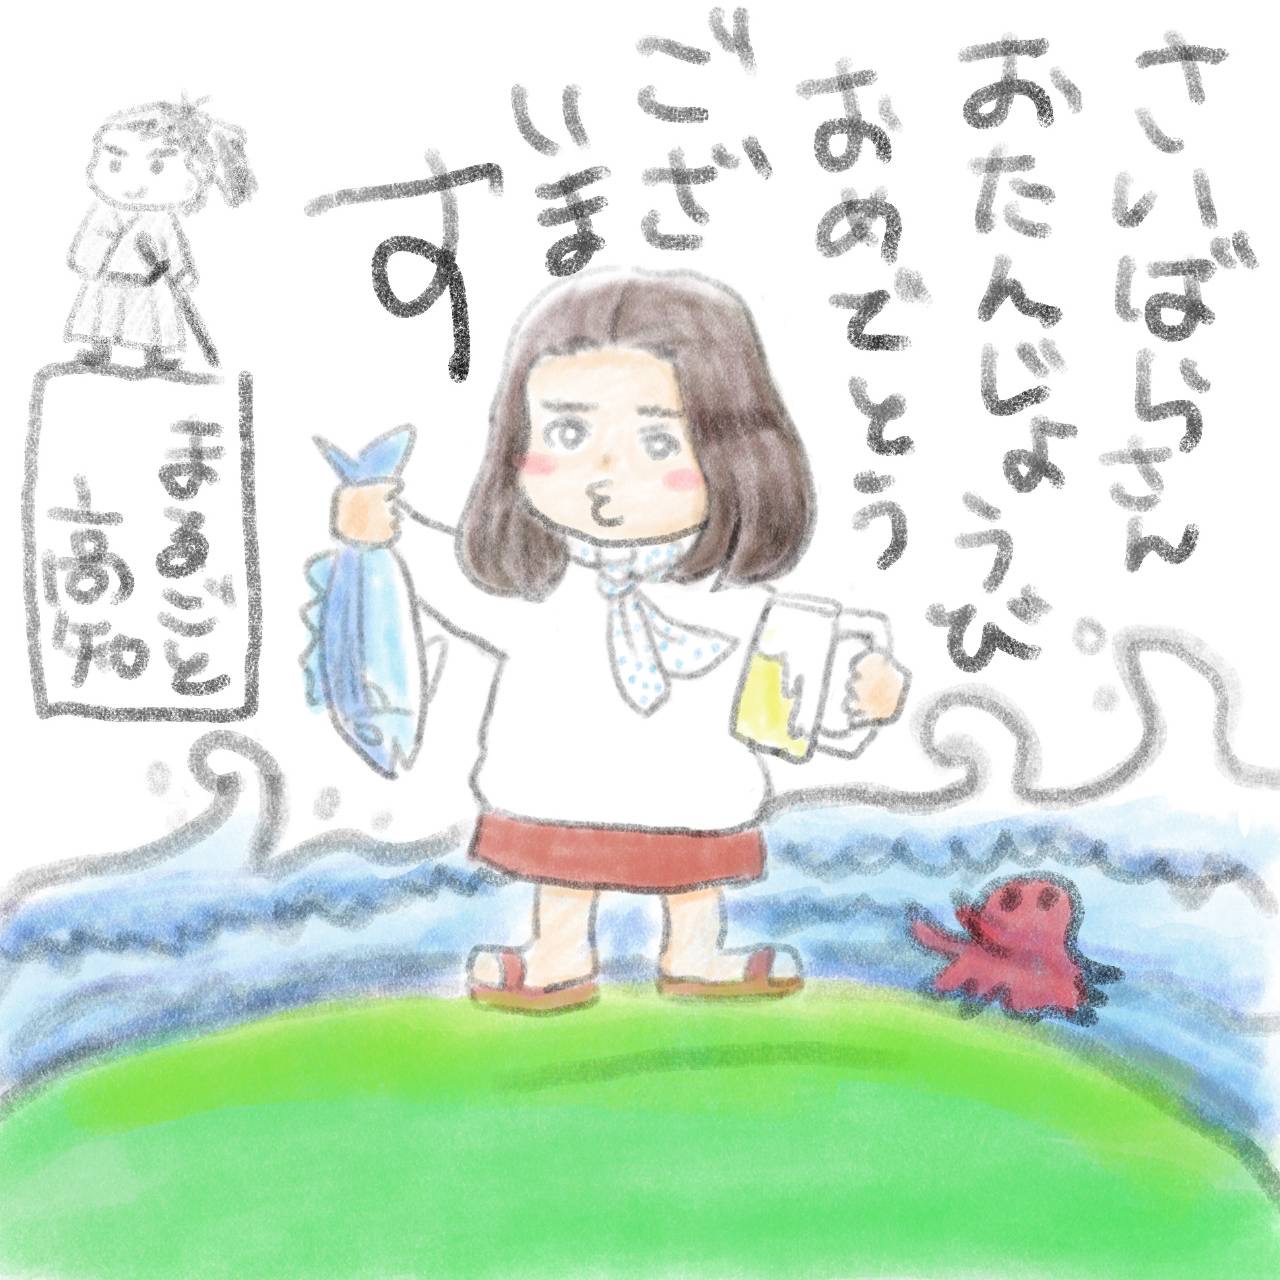 さいばらさん
おたんじょうび
おめでとう
ござ
いま
す
まるごと
高知